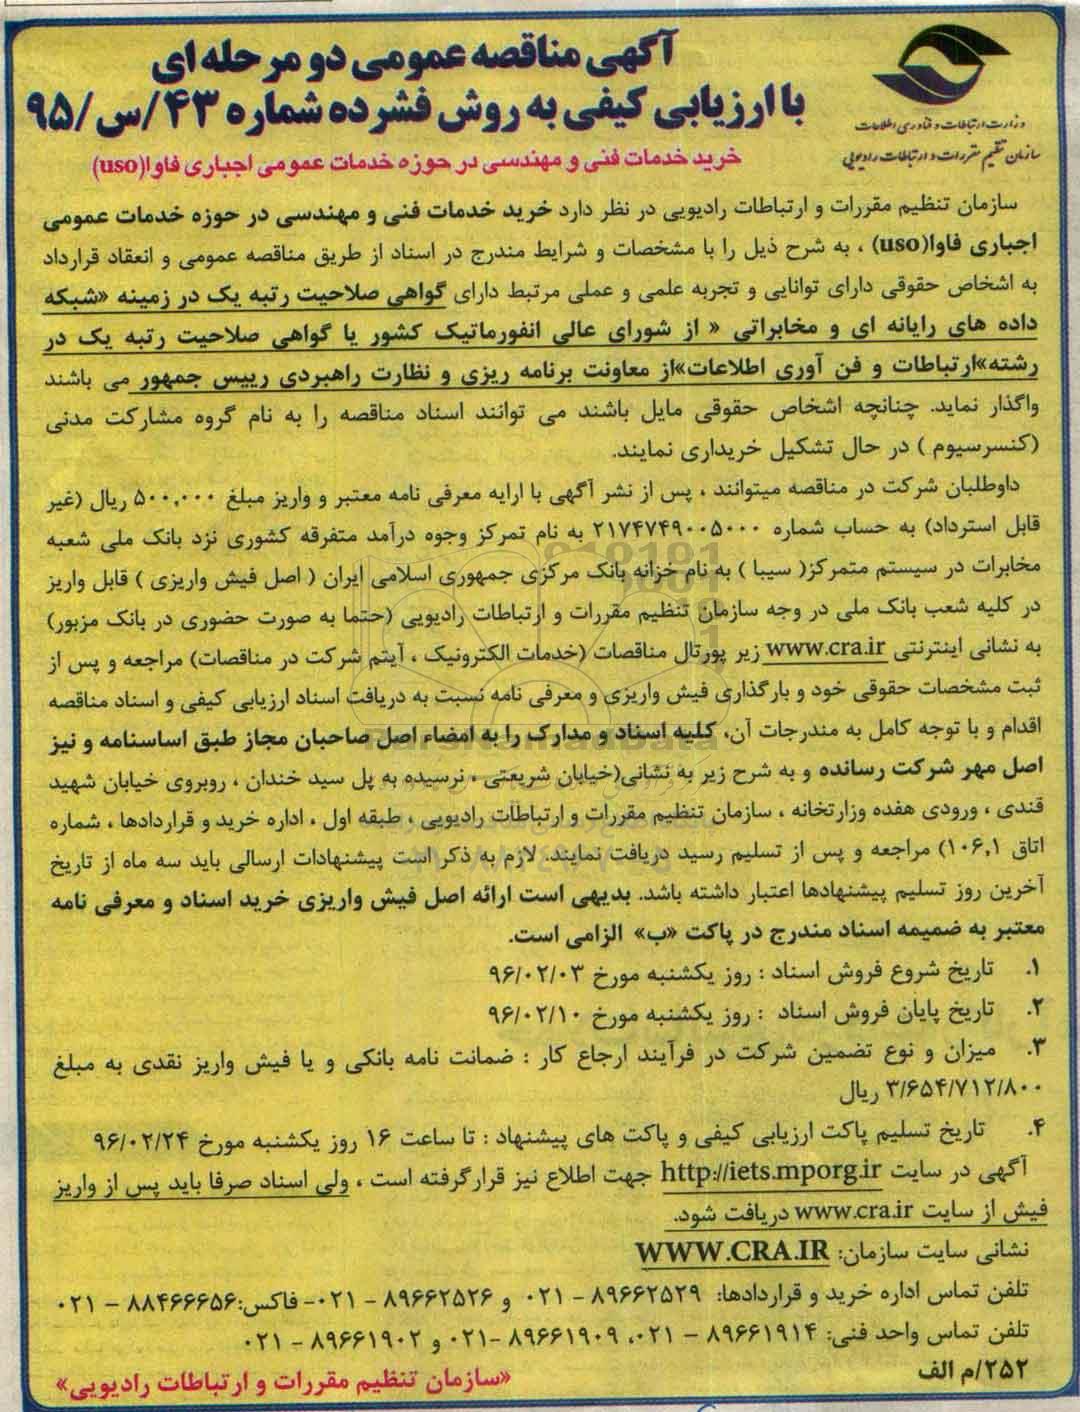 آگهی مناقصه عمومی دو مرحله ای
با ارزیابی کیفی به روش فشرده شماره ۴۳/س/۹۵
وزارت ارتباطات و فناوری اطلاعات
سازمان تنظیم مقررات و ارتباطات رادیویی
خرید خدمات فنی و مهندسی در حوزه خدمات عمومی اجباری فاوا(uso)
سازمان تنظیم مقررات و ارتباطات رادیویی در نظر دارد خرید خدمات فنی و مهندسی در حوزه خدمات عمومی
اجباری فاوا(uso) ، به شرح ذیل را با مشخصات و شرایط مندرج در اسناد از طریق مناقصه عمومی و انعقاد قرارداد
به اشخاص حقوقی دارای توانایی و تجربه علمی و عملی مرتبط دارای گواهی صلاحیت رتبه یک در زمینه «شبکه
داده های رایانه ای و مخابراتی « از شورای عالی انفورماتیک کشور یا گواهی صلاحیت رتبه یک در
رشته»ارتباطات و فن آوری اطلاعات»از معاونت برنامه ریزی و نظارت راهبردی رییس جمهور می باشند
واگذار نماید. چنانچه اشخاص حقوقی مایل باشند می توانند اسناد مناقصه را به نام گروه مشارکت مدنی
(کنسرسیوم ) در حال تشکیل خریداری نمایند.
داوطلبان شرکت در مناقصه میتوانند ، پس از نشر آگهی با ارایه معرفی نامه معتبر و واریز مبلغ ۵۰۰,۰۰۰ ریال (غیر
قابل استرداد) به حساب شماره ۲۱۷۴۷۴۹۰۰۵۰۰۰ به نام تمرکز وجوه درآمد متفرقه کشوری نزد بانک ملی شعبه
مخابرات در سیستم متمرکز( سیبا ) به نام خزانه بانک مرکزی جمهوری اسلامی ایران ( اصل فیش واریزی ) قابل واریز
در کلیه شعب بانک ملی در وجه سازمان تنظیم مقررات و ارتباطات رادیویی (حتما به صورت حضوری در بانک مزبور)
به نشانی اینترنتی www.cra.ir زیر پورتال مناقصات (خدمات الکترونیک ، آیتم شرکت در مناقصات) مراجعه و پس از
ثبت مشخصات حقوقی خود و بارگذاری فیش واریزی و معرفی نامه نسبت به دریافت اسناد ارزیابی کیفی و اسناد مناقصه
اقدام و با توجه کامل به مندرجات آن، کلیه اسناد و مدارک را به امضاء اصل صاحبان مجاز طبق اساسنامه و نیز
اصل مهر شرکت رسانده و به شرح زیر به نشانی(خیابان شریعتی ، نرسیده به پل سید خندان ، روبروی خیابان شهید
قندی ، ورودی هفده وزارتخانه ، سازمان تنظیم مقررات و ارتباطات رادیویی ، طبقه اول ، اداره خرید و قراردادها ، شماره
اتاق ۱۰۶,۱) مراجعه و پس از تسلیم رسید دریافت نمایند. لازم به ذکر است پیشنهادات ارسالی باید سه ماه از تاریخ
آخرین روز تسلیم پیشنهادها اعتبار داشته باشد. بدیهی است ارائه اصل فیش واریزی خرید اسناد و معرفی نامه
معتبر به ضمیمه اسناد مندرج در پاکت «ب» الزامی است.
۱. تاریخ شروع فروش اسناد : روز یکشنبه مورخ ۹۶/۰۲/۰۳
۲. تاریخ پایان فروش اسناد : روز یکشنبه مورخ ۹۶/۰۲/۱۰
۳. میزان و نوع تضمین شرکت در فرآیند ارجاع کار : ضمانت نامه بانکی و یا فیش واریز نقدی به مبلغ
۳/۶۵۴/۷۱۲/۸۰۰ ریال
۴. تاریخ تسلیم پاکت ارزیابی کیفی و پاکت های پیشنهاد : تا ساعت ۱۶ روز یکشنبه مورخ ۹۶/۰۲/۲۴
آگهی در سایت http://iets.mporg.ir جهت اطلاع نیز قرارگرفته است ، ولی اسناد صرفا باید پس از واریز
فیش از سایت www.cra.ir دریافت شود.
نشانی سایت سازمان: WWW.CRA.IR
تلفن تماس اداره خرید و قراردادها: ۸۹۶۶۲۵۲۹ - ۰۲۱ و ۸۹۶۶۲۵۲۶ - ۰۲۱- فاکس:۸۸۴۶۶۶۵۶ - ۰۲۱
تلفن تماس واحد فنی: ۸۹۶۶۱۹۱۴ - ۰۲۱، ۸۹۶۶۱۹۰۹ -۰۲۱ و ۸۹۶۶۱۹۰۲ - ۰۲۱
۲۵۲/م الف
«سازمان تنظیم مقررات و ارتباطات رادیویی»